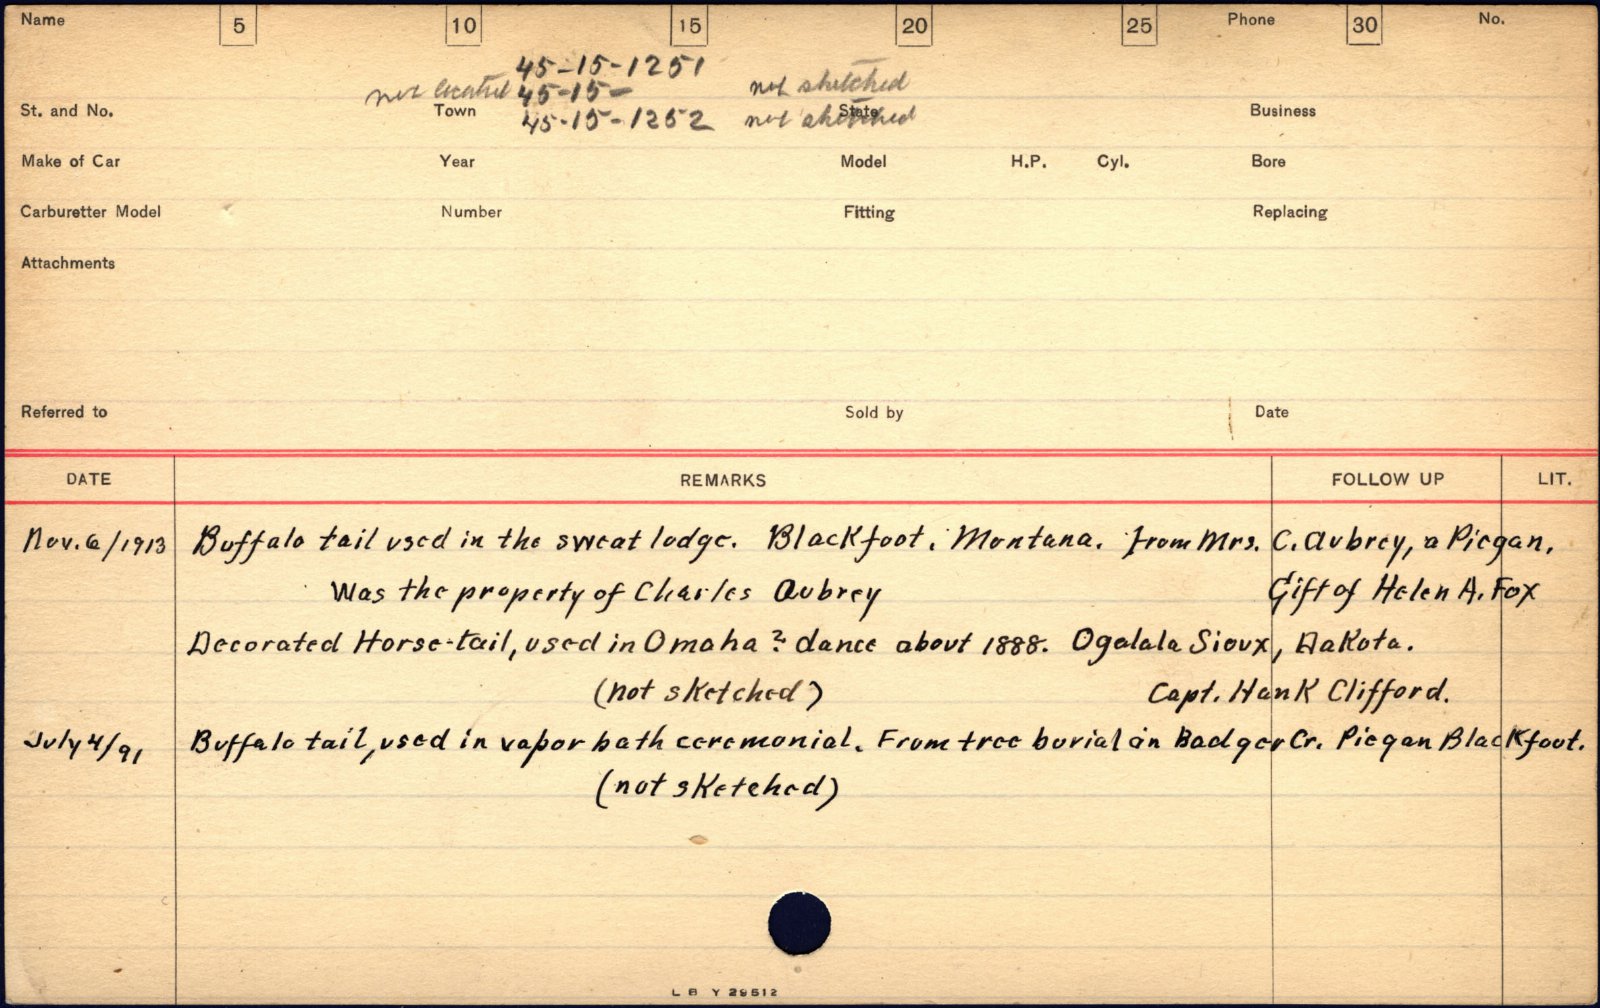 Name 5 10 15 20 25 Phone 30 No.
45-15-1251
not located 45-15- not sketched
St. and No. Town State Business
45-15-1252 not sketched
Make of Car Year Model H.P. Cyl. Bore
Carburetter Model Number Fitting Replacing
Attachments
Referred to Sold by Date
DATE REMARKS FOLLOW UP LIT.
Nov. 6/1913 Buffalo tail used in the sweat lodge. Blackfoot, Montana. From Mrs. C. Aubrey, a Piegan.
Was the property of Charles Aubrey Gift of Helen A. Fox
Decorated Horse-tail, used in Omaha ? dance about 1888. Ogalala Sioux, Dakota.
(not sketched) Capt. Hank Clifford.
July 4/91 Buffalo tail, used in vapor bath ceremonial. From tree burial on Badger Cr. Piegan Blackfoot.
(not sketched)
L B Y 29512